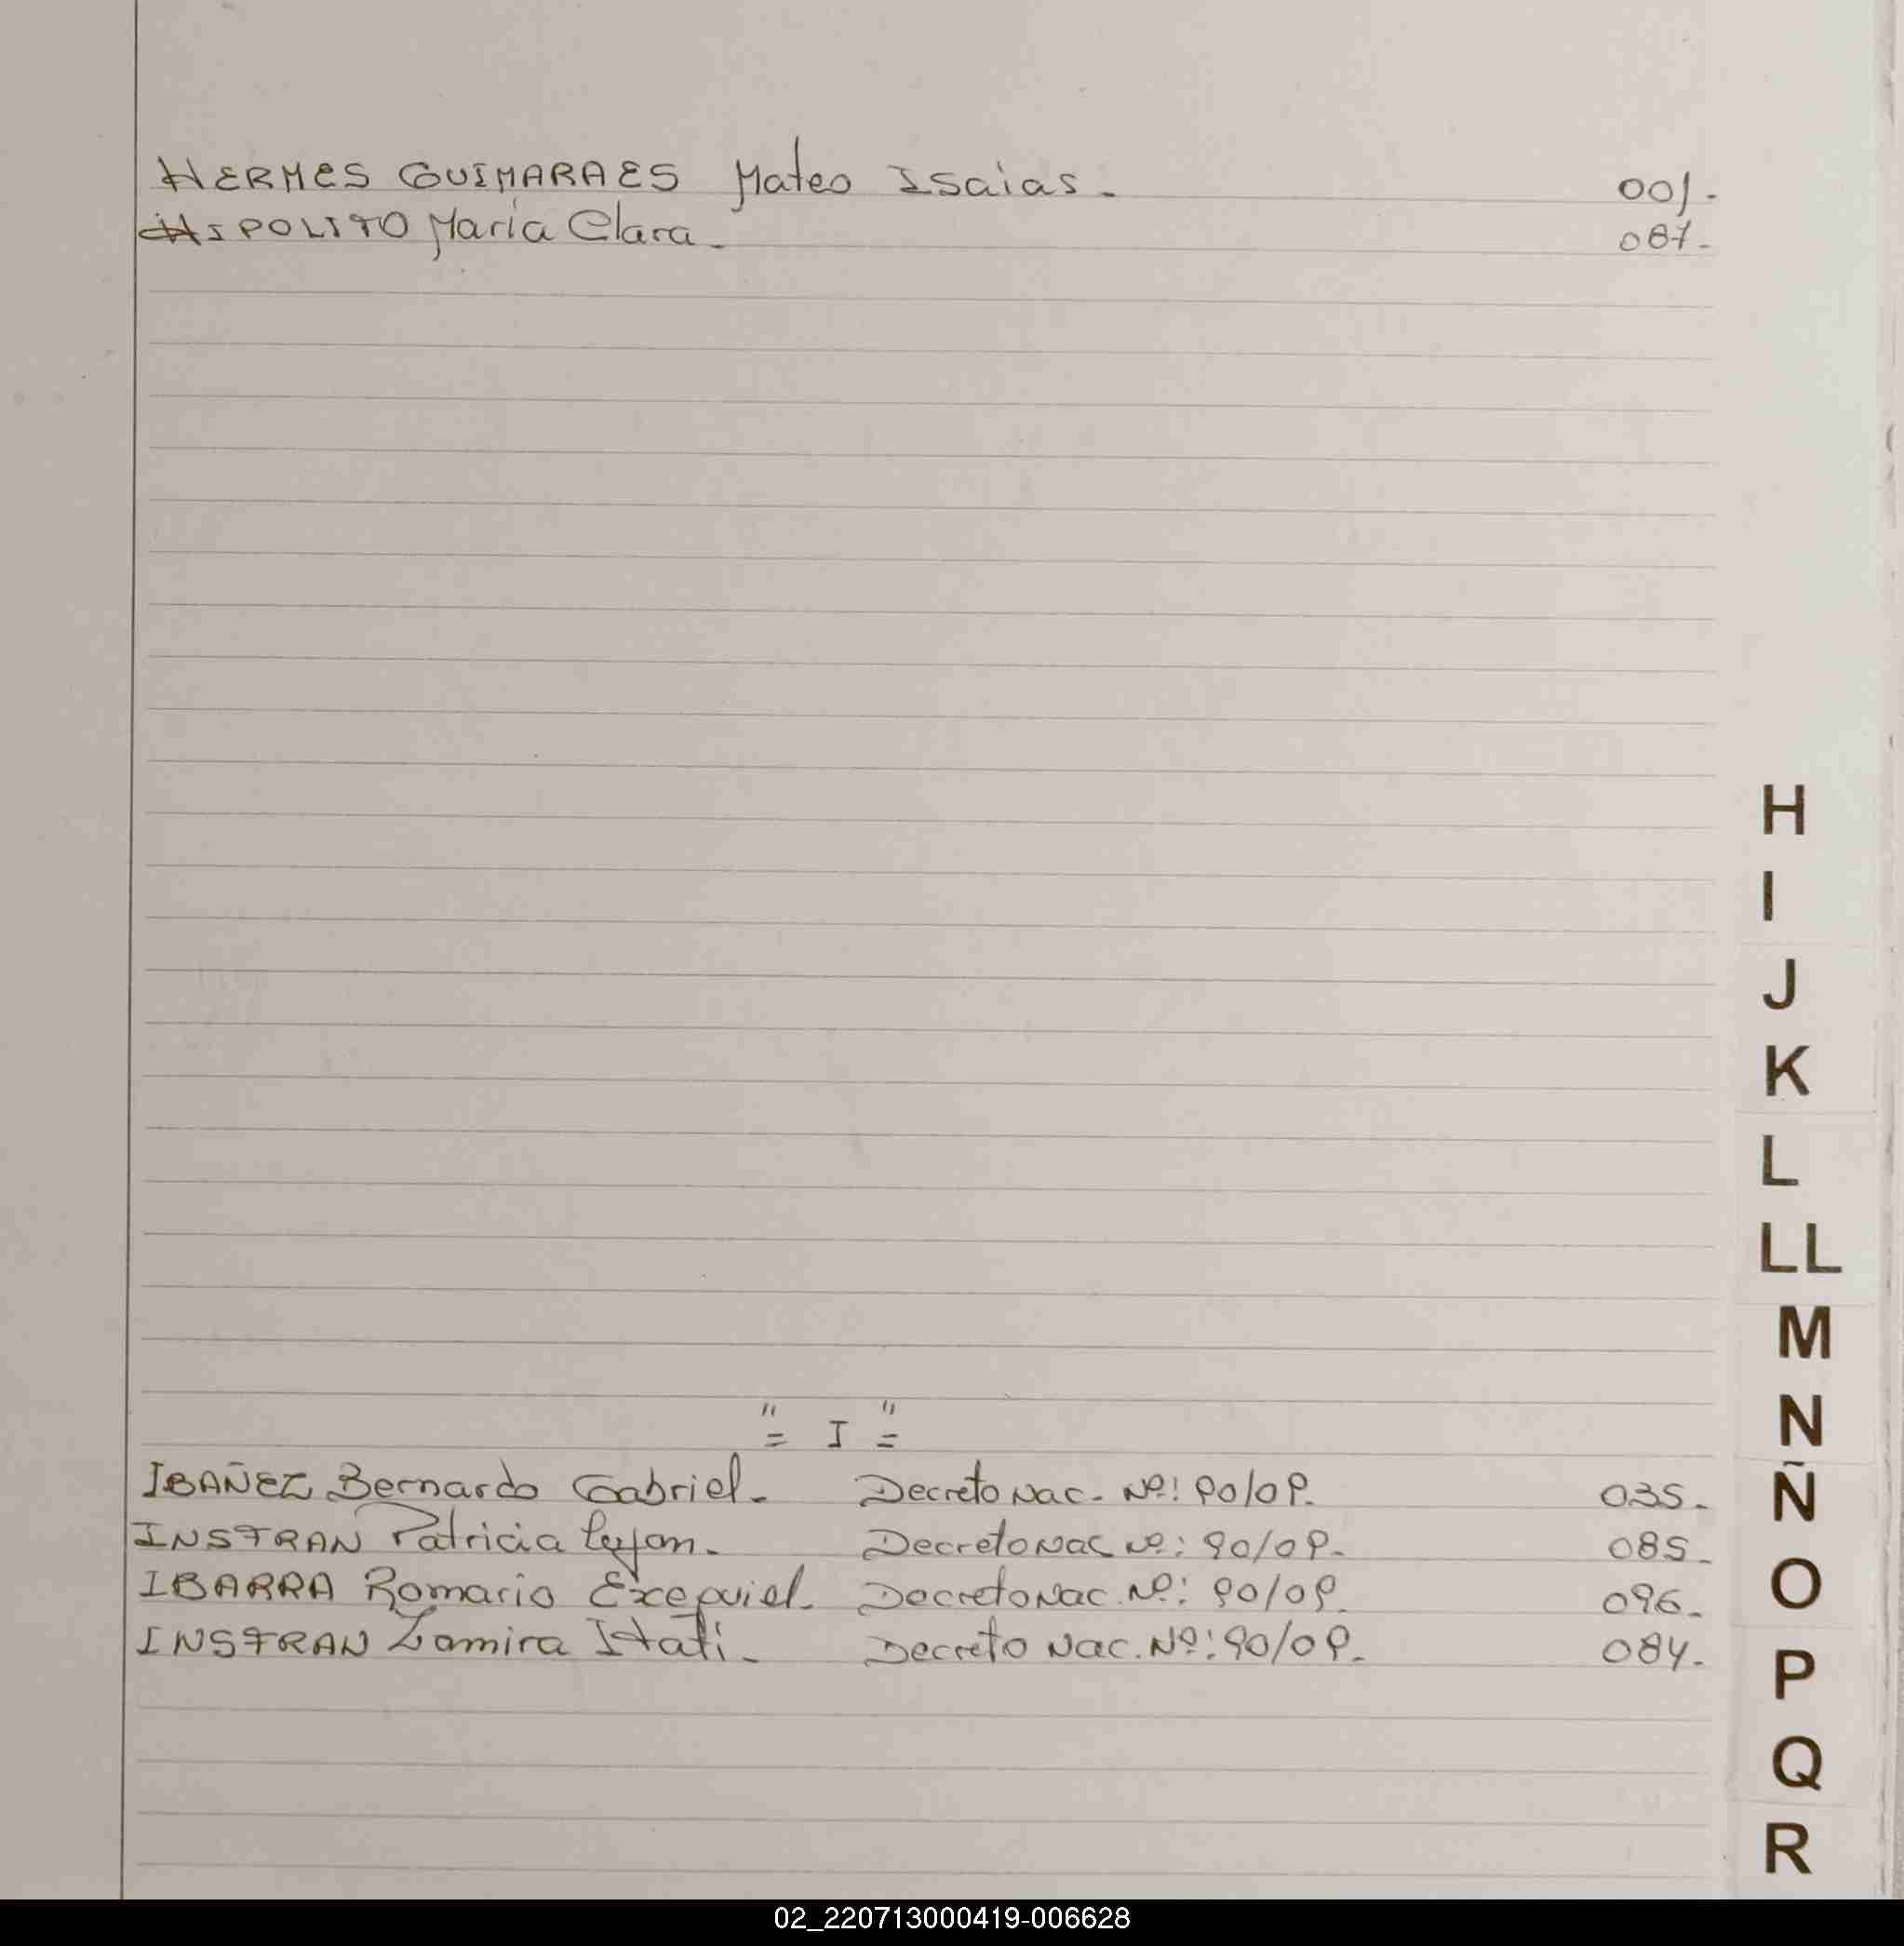 HERMES GUIMARAES Mateo Isaias. 001.
HIPOLITO Maria Clara. 087.
H
I
J
K
L
LL
M
N
Ñ
O
P
Q
R
"= I "=
IBAÑEZ Bernardo Gabriel. Decreto Nac. Nº: 90/09. 035.
INSFRAN Patricia. Decreto Nac Nº: 90/09. 085.
IBARRA Romario Exequiel. Decreto Nac. Nº: 90/09. 096.
INSFRAN Zamira Itati. Decreto Nac. Nº: 90/09. 084.
02_220713000419-006628